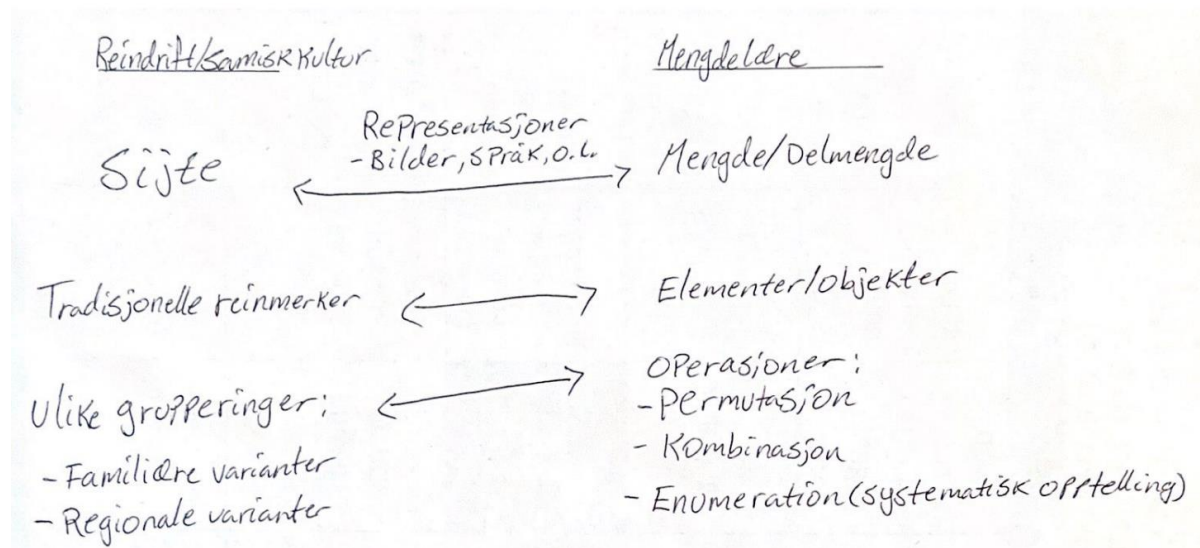 Reindrift/samisk kultur
Mengdelære
Representasjoner
- Bilder, språk, o.l.
Sijte
Mengde/Delmengde
Tradisjonelle reinmerker
Elementer/objekter
Ulike grupperinger:
- Familiære varianter
- Regionale varianter
Operasjoner:
- Permutasjon
- Kombinasjon
- Enumeration (systematisk opptelling)